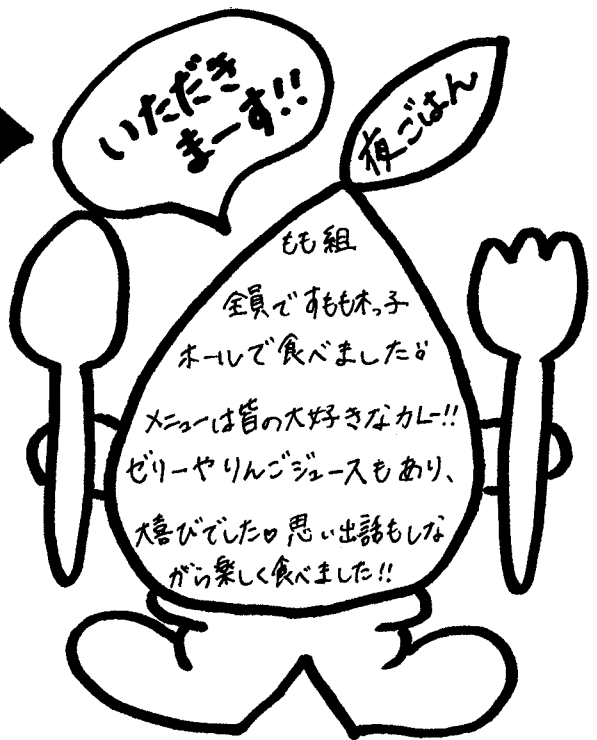 いただき
まーす!!
夜ごはん
もも組
全員ですももっ子
ホールで食べました。
メニューは皆の大好きなカレー!!
ゼリーやりんごジュースもあり、
大喜びでした♡思い出話もしな
がら楽しく食べました!!